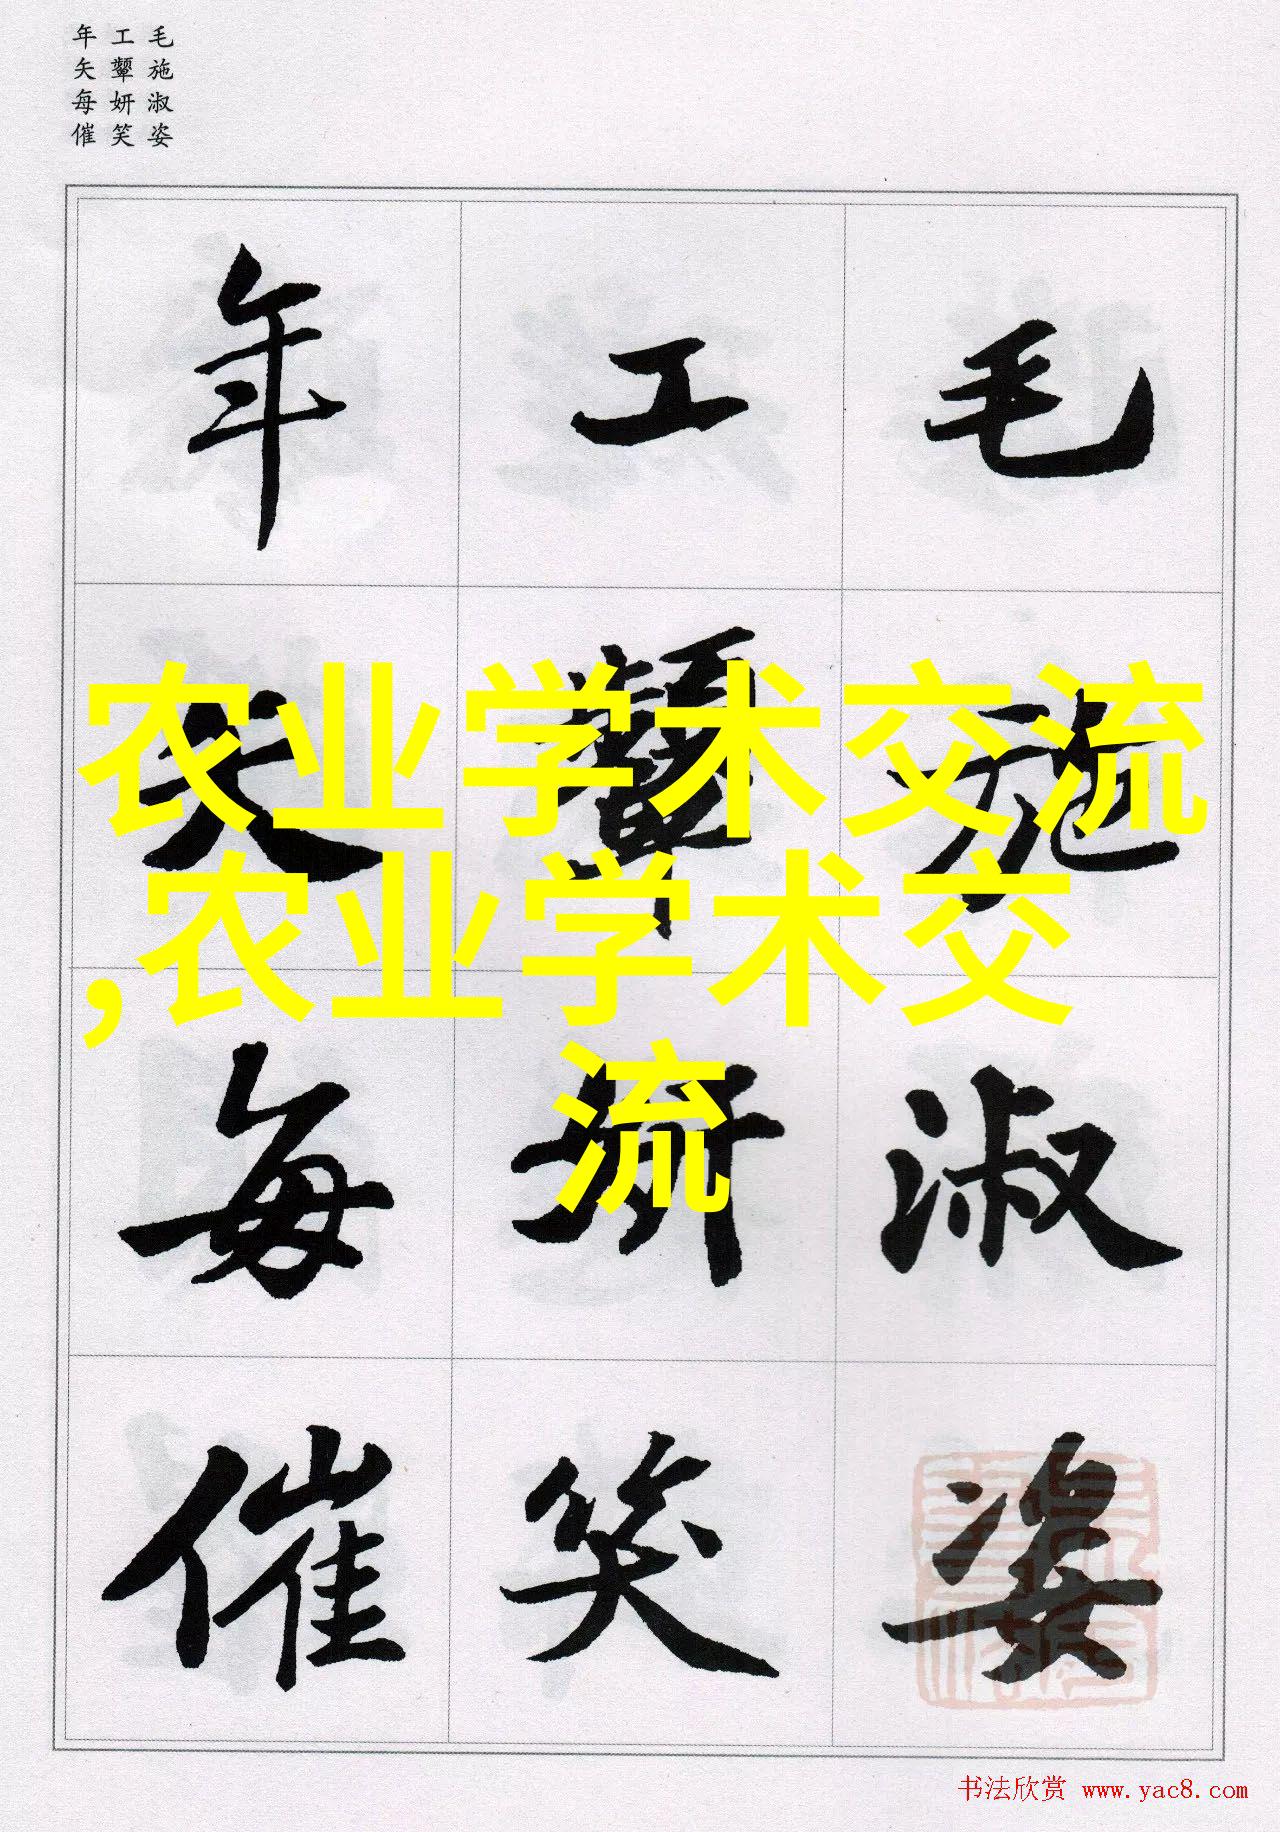 毛施淑姿
工颦妍笑
年矢每催
毛施淑姿
工颦妍笑
年矢每催
农业学术交流
,农业学术交
流
书法欣赏 www.yac8.com